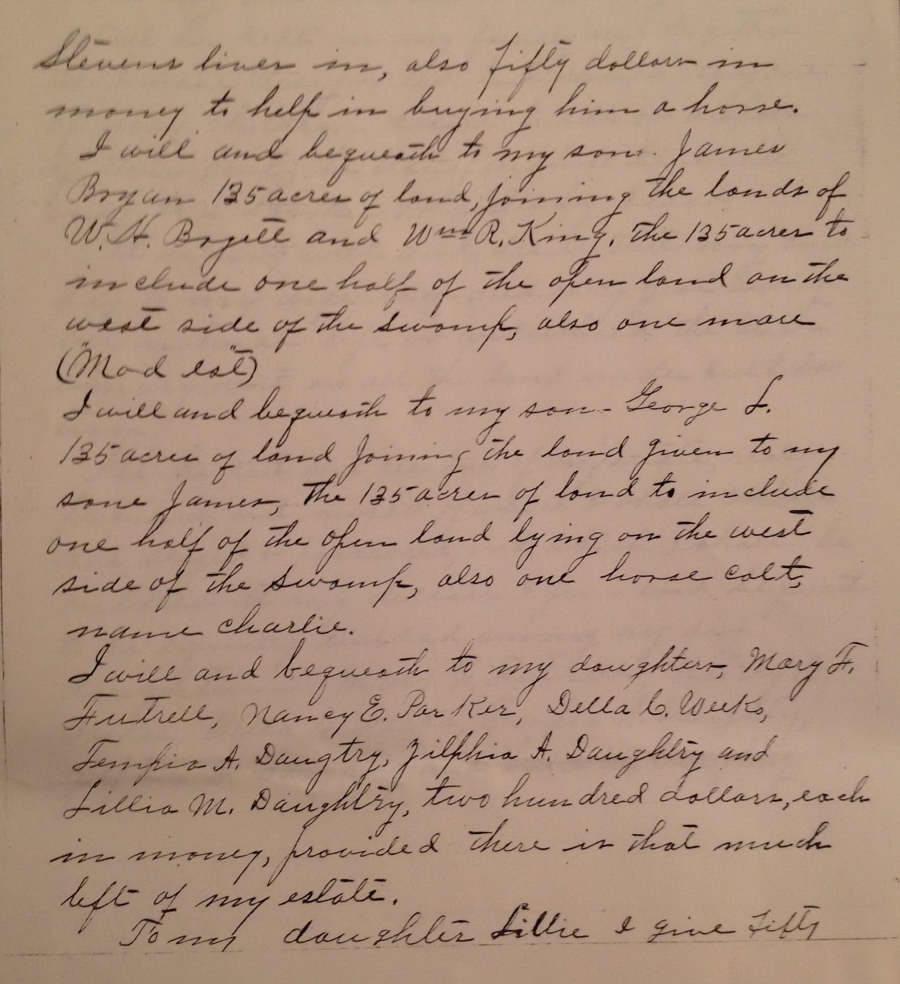 Stevens lives in, also fifty dollars in
money to help in buying him a horse.
I will and bequeath to my son. James
Bryan 135 acres of land, joining the lands of
W. H. and Wm R. King, the 135 acres to
include one half of the open land on the
west side of the swamp, also one mare
("Mod est")
I will and bequeath to my son - George L.
135 acres of land Joining the land given to my
sone James, the 135 acres of land to include
one half of the open land lying on the west
side of the swamp, also one horse colt,
name Charlie.
I will and bequeath to my daughters, Mary F.
Futrell, Nancy E. Parker, Della C. Weeks,
Tempia A. Daugtry, Zilphia A. Daughtry and
Lillia M. Daughtry, two hundred dollars, each
in money, provided there is that much
left of my estate.
To my daughter Lillie I give Fifty